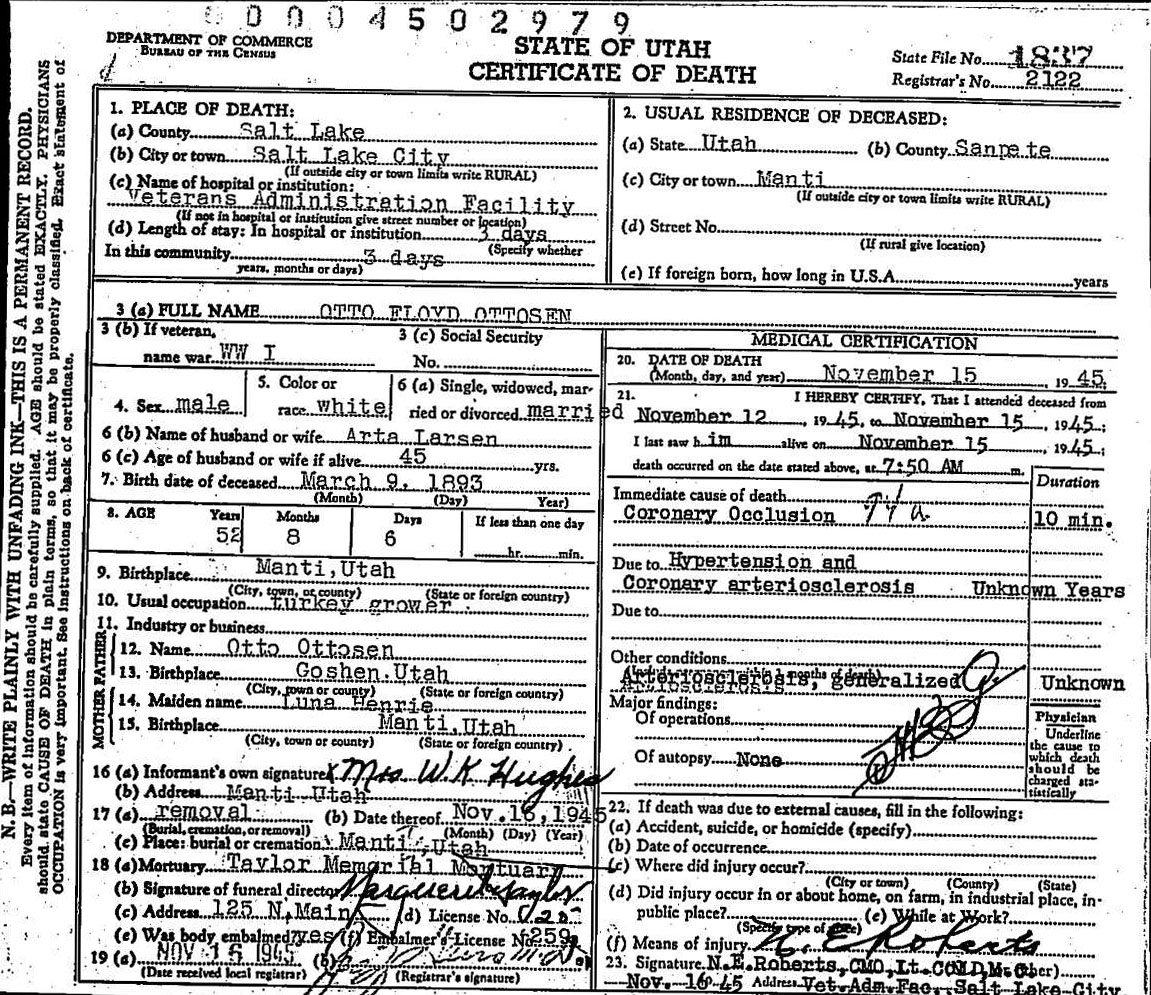 0004502979
DEPARTMENT OF COMMERCE
BUREAU OF THE CENSUS
STATE OF UTAH
CERTIFICATE OF DEATH
State File No. 1837
Registrar's No. 2122
N. B.—WRITE PLAINLY WITH UNFADING INK—THIS IS A PERMANENT RECORD.
Every item of information should be carefully supplied. AGE should be stated EXACTLY. PHYSICIANS
should state CAUSE OF DEATH in plain terms, so that it may be properly classified. Exact statement of
OCCUPATION is very important. See instructions on back of certificate.
1. PLACE OF DEATH:
(a) County Salt Lake
(b) City or town Salt Lake City
(If outside city or town limits write RURAL)
(c) Name of hospital or institution:
Veterans Administration Facility
(If not in hospital or institution give street number or location)
(d) Length of stay: In hospital or institution 3 days
(Specify whether
In this community 3 days
years, months or days)
2. USUAL RESIDENCE OF DECEASED:
(a) State Utah (b) County Sanpete
(c) City or town Manti
(If outside city or town limits write RURAL)
(d) Street No.
(If rural give location)
(e) If foreign born, how long in U.S.A. years
3 (a) FULL NAME OTTO FLOYD OTTOSEN
3 (b) If veteran,
name war WW I
3 (c) Social Security
No.
4. Sex male
5. Color or
race white
6 (a) Single, widowed, mar-
ried or divorced married
6 (b) Name of husband or wife Arta Larsen
6 (c) Age of husband or wife if alive 45 yrs.
7. Birth date of deceased March 9, 1893
(Month) (Day) Year)
8. AGE Years Months Days If less than one day
52 8 6 hr. min.
9. Birthplace Manti, Utah
(City, town, or county) (State or foreign country)
10. Usual occupation turkey grower
11. Industry or business
FATHER
12. Name Otto Ottosen
13. Birthplace Goshen, Utah
(City, town or county) (State or foreign country)
MOTHER
14. Maiden name Luna Henrie
15. Birthplace Manti, Utah
(City, town or county) (State or foreign country)
16 (a) Informant's own signature X Mrs W. K Hughes
(b) Address Manti Utah
17 (a) removal (b) Date thereof Nov. 16, 1945
(Burial, cremation, or removal) (Month) (Day) (Year)
(c) Place: burial or cremation Manti, Utah
18 (a) Mortuary Taylor Memorial Mortuary
(b) Signature of funeral director Marguerite Taylor
(c) Address 125 N. Main (d) License No.
(e) Was body embalmed? yes (f) Embalmer's License No. 259
19 (a) NOV 16 1945 (b)
(Date received local registrar) (Registrar's signature)
MEDICAL CERTIFICATION
20. DATE OF DEATH
(Month, day, and year) November 15, 1945
21. I HEREBY CERTIFY, That I attended deceased from
November 12, 1945, to November 15, 1945;
I last saw him alive on November 15, 1945;
death occurred on the date stated above, at 7:50 AM m.
Duration
Immediate cause of death
Coronary Occlusion 10 min.
Due to Hypertension and
Coronary arteriosclerosis Unknown Years
Due to
Other conditions
Arteriosclerosis, generalized Unknown
Major findings:
Of operations
Of autopsy None
Physician
Underline
the cause to
which death
should be
charged sta-
tistically
22. If death was due to external causes, fill in the following:
(a) Accident, suicide, or homicide (specify)
(b) Date of occurrence
(c) Where did injury occur?
(City or town) (County) (State)
(d) Did injury occur in or about home, on farm, in industrial place, in-
public place? (e) While at Work?
(Specify type of place)
(f) Means of injury N. E Roberts
23. Signature N.E.Roberts, CMO, Lt.Col
Nov. 16 45 Address Vet. Adm. Fac., Salt Lake City